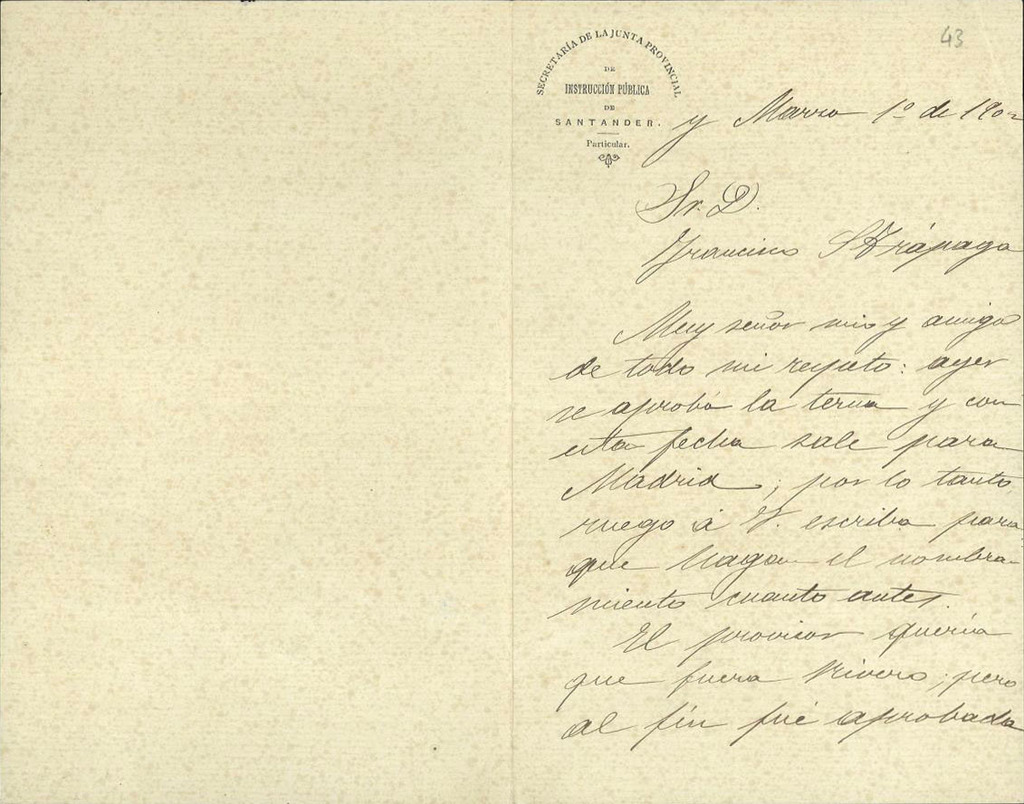 43
SECRETARÍA DE LA JUNTA PROVINCIAL
DE
INSTRUCCIÓN PÚBLICA
DE
SANTANDER.
Particular.
y Marzo 1º de 1902
Sr. D.
Francisco S Trápaga
Muy señor mio y amigo
de todo mi respeto: ayer
se aprobó la terna y con
esta fecha sale para
Madrid; por lo tanto,
ruego á V. escriba para
que hagan el nombra-
miento cuanto antes.
El provisor queria
que fuera Rivero; pero
al fin fué aprobada